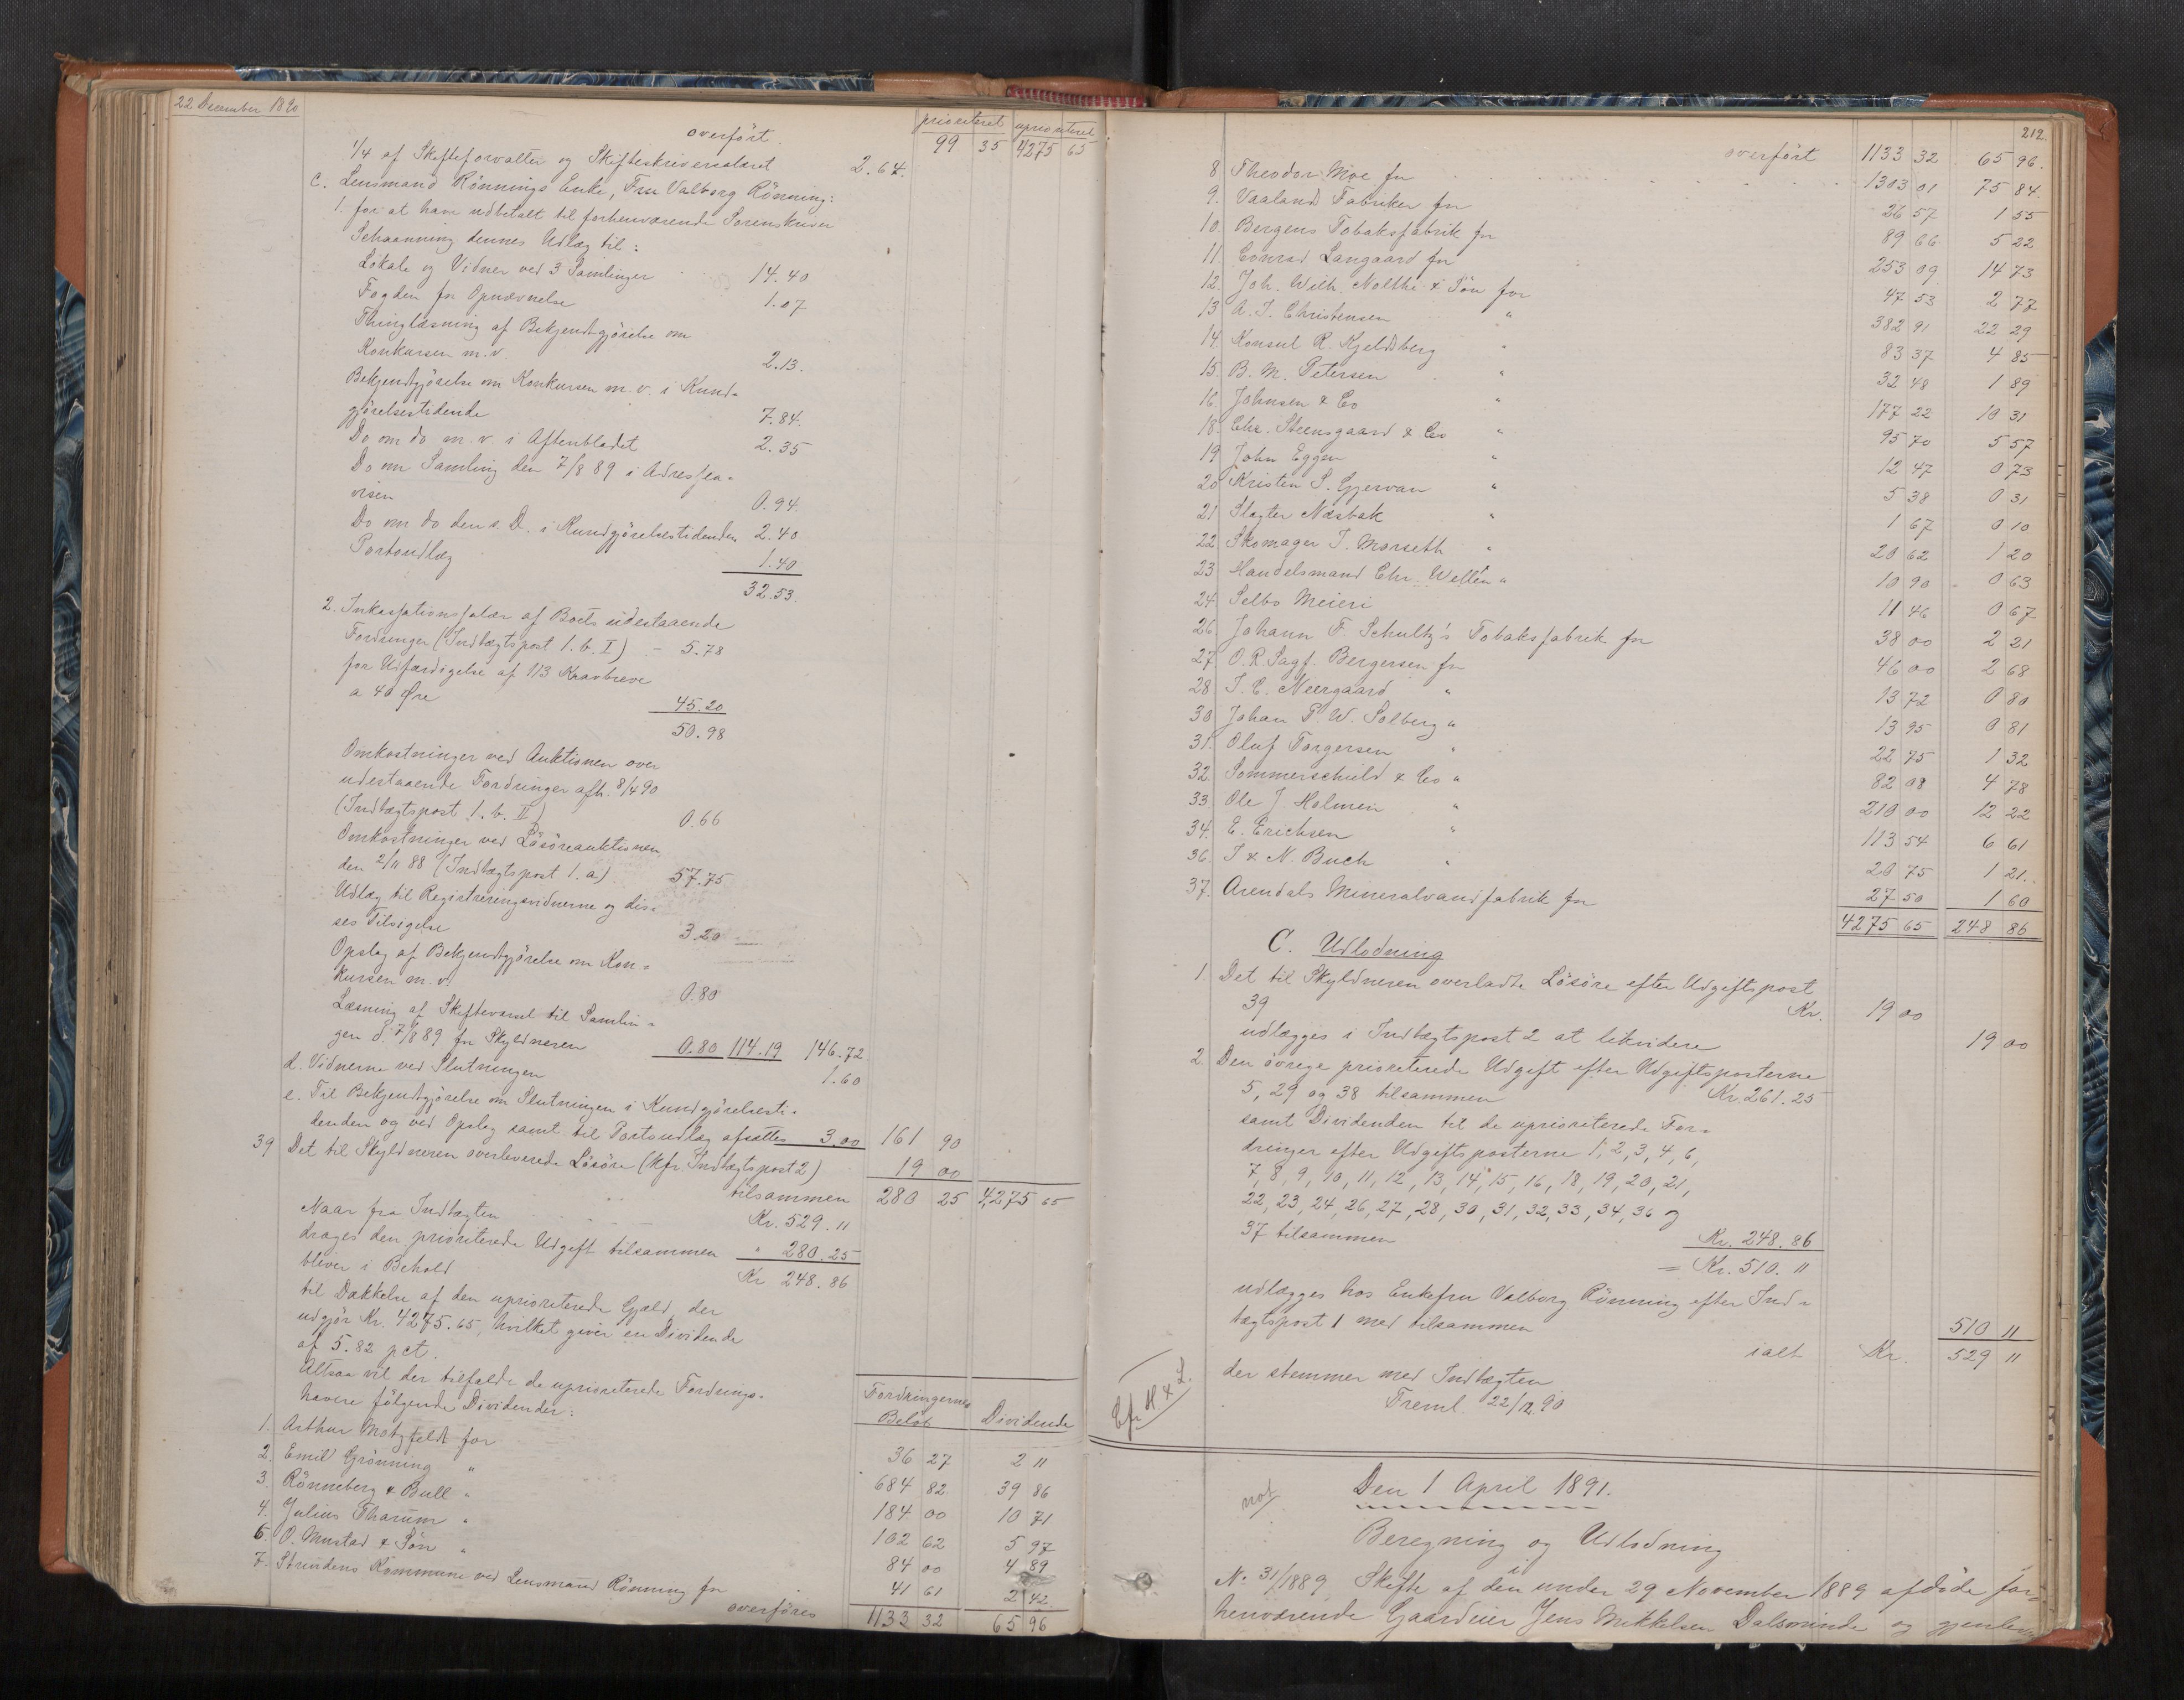 22 December 1890
prioriteret uprioriteret
overført. 99 35 4275 65
1/4 af Skifteforvalter og Skifteskriversalæret 2.64.
c. Lensmand Rönnings Enke, Fru Valborg Rönning:
1. for at have udbetalt til forhenværende Sorenskriver
Schaanning dennes Udlæg til:
Lokale og Vidner ved 3 Samlinger 14.40
Fogden for Opnævnelse 1.07
Thinglæsning af Bekjendtgjörelse om
Konkursen m.v. 2.13.
Bekjendtgjörelse om Konkursen m.v. i Kund-
gjörelsestidende 7.84.
Do om do m.v. i Aftenbladet 2.35
Do om Samling den 7/8 89 i Adressea-
visen 0.94.
Do om do den s. D. i Kundgjörelsestidenden 2.40
Portoudlæg 1.40
32.53.
2. Inkassationssalær af Boets udestaaende
Fordringer (Indtægtspost 1.b.I) - 5.78
for Udfærdigelse af 113 Kravbreve
a 40 Øre 45.20
50.98
Omkostninger ved Auktionen over
udestaaende Fordringer afh. 8/4 90
(Indtægtspost 1.b.II) 0.66
Omkostninger ved Lösöreauktionen
den 2/11 88 (Indtægtspost 1.a) 57.75
Udlæg til Registreringsvidnerne og dis-
ses Tilsigelse 3.20
Opslag af Bekjendtgjörelse om Kon-
kursen m.v. 0.80
Læsning af Skiftevarsel til Samlin-
gen d. 7/8 89 for Skyldneren 0.80 114.19 146.72
d. Vidnerne ved Slutningen 1.60
e. Til Bekjendtgjörelse om Slutningen i Kundgjörelsesti-
denden og ved Opslag samt til Portoudlæg afsættes 3.00 161 90
39 Det til Skyldneren overleverede Lösöre (kfr. Indtægtspost 2) 19 00
tilsammen 280 25 4275 65
Naar fra Indtægten Kr. 529.11
drages den prioriterede Udgift tilsammen " 280.25
bliver i Behold Kr 248.86
til Dækkelse af den uprioriterede Gjæld, der
udgjör Kr. 4275.65, hvilket giver en Dividende
af 5.82 pct.
Altsaa vil der tilfalde de uprioriterede Fordrings-
havere fölgende Dividender:
Fordringernes
Belöb Dividende
1. Arthur Motzfeldt for 36 27 2 11
2. Emil Grönning " 684 82 39 86
3. Rönneberg & Bull " 184 00 10 71
4. Julius Tharum " 102 62 5 97
6 O. Mustad & Sön " 84 00 4 89
7. Strindens Kommune ved Lensmand Rönning for 41 61 2 42
overföres 1133 32 65 96
212.
overfört 1133 32 65 96.
8 Theodor Moe for 1303 01 75 84.
9. Vaaland Fabriker for 26 57 1 55
10. Bergens Tobaksfabrik for 89 66 5 22
11. Conrad Langaard for 253 09 14 73
12. Joh. Wilh. Nolthi & Sön for 47 53 2 77
13 A. J. Christensen " 382 91 22 29
14. Konsul R. Kjeldsberg " 83 37 4 85
15. B. M. Petersen " 32 48 1 89
16. Johnsen & Co " 177 22 10 31
18. Chr. Steensgaard & Co " 95 70 5 57
19 John Eggen " 12 47 0 73
20 Kristen S. Gjervan " 5 38 0 31
21 Slagter Næsbak " 1 67 0 10
22 Skomager J. Morseth " 20 62 1 20
23 Handelsmand Chr. Wellén " 10 90 0 63
24 Selbo Meieri 11 46 0 67
26 Johann F. Schultz's Tobaksfabrik for 38 00 2 21
27 O. R. Sagf. Bergersen for 46 00 2 68
28 J. C. Neergaard " 13 72 0 80
30 Johan P. W. Solberg " 13 95 0 81
31. Oluf Torgersen " 22 75 1 32
32. Sommerschield & Co " 82 08 4 78
33. Ole J Holmen " 210 00 12 22
34. E. Erichsen " 113 54 6 61
36. J & N. Buch " 20 75 1 21.
37. Arendals Mineralvandfabrik for 27 50 1 60
4275 65 248 86
C. Udlodning
1. Det til Skyldneren overladte Lösöre efter Udgiftspost
39 Kr. 19 00
udlægges i Indtægtspost 2 at likvidere 19 00
2. Den övrige prioriterede Udgift efter Udgiftsposterne
5, 29 og 38 tilsammen Kr. 261.25
samt Dividenden til de uprioriterede For-
dringer efter Udgiftsposterne 1, 2, 3, 4, 6,
7, 8, 9, 10, 11, 12, 13, 14, 15, 16, 18, 19, 20, 21,
22, 23, 24, 26, 27, 28, 30, 31, 32, 33, 34, 36 og
37 tilsammen Kr. 248.86
= Kr. 510.11
udlægges hos Enkefru Valborg Rönning efter Ind-
tægtspost 1 med tilsammen 510 11
ialt Kr. 529 11
der stemmer med Indtægten
Freml. 22/12.90
not
Den 1 April 1891.
Beregning og Udlodning
i
No 31/1889 Skifte af den under 29 November 1889 afdöde for-
henværende Gaardeier Jens Mikkelsen Dalsminde og